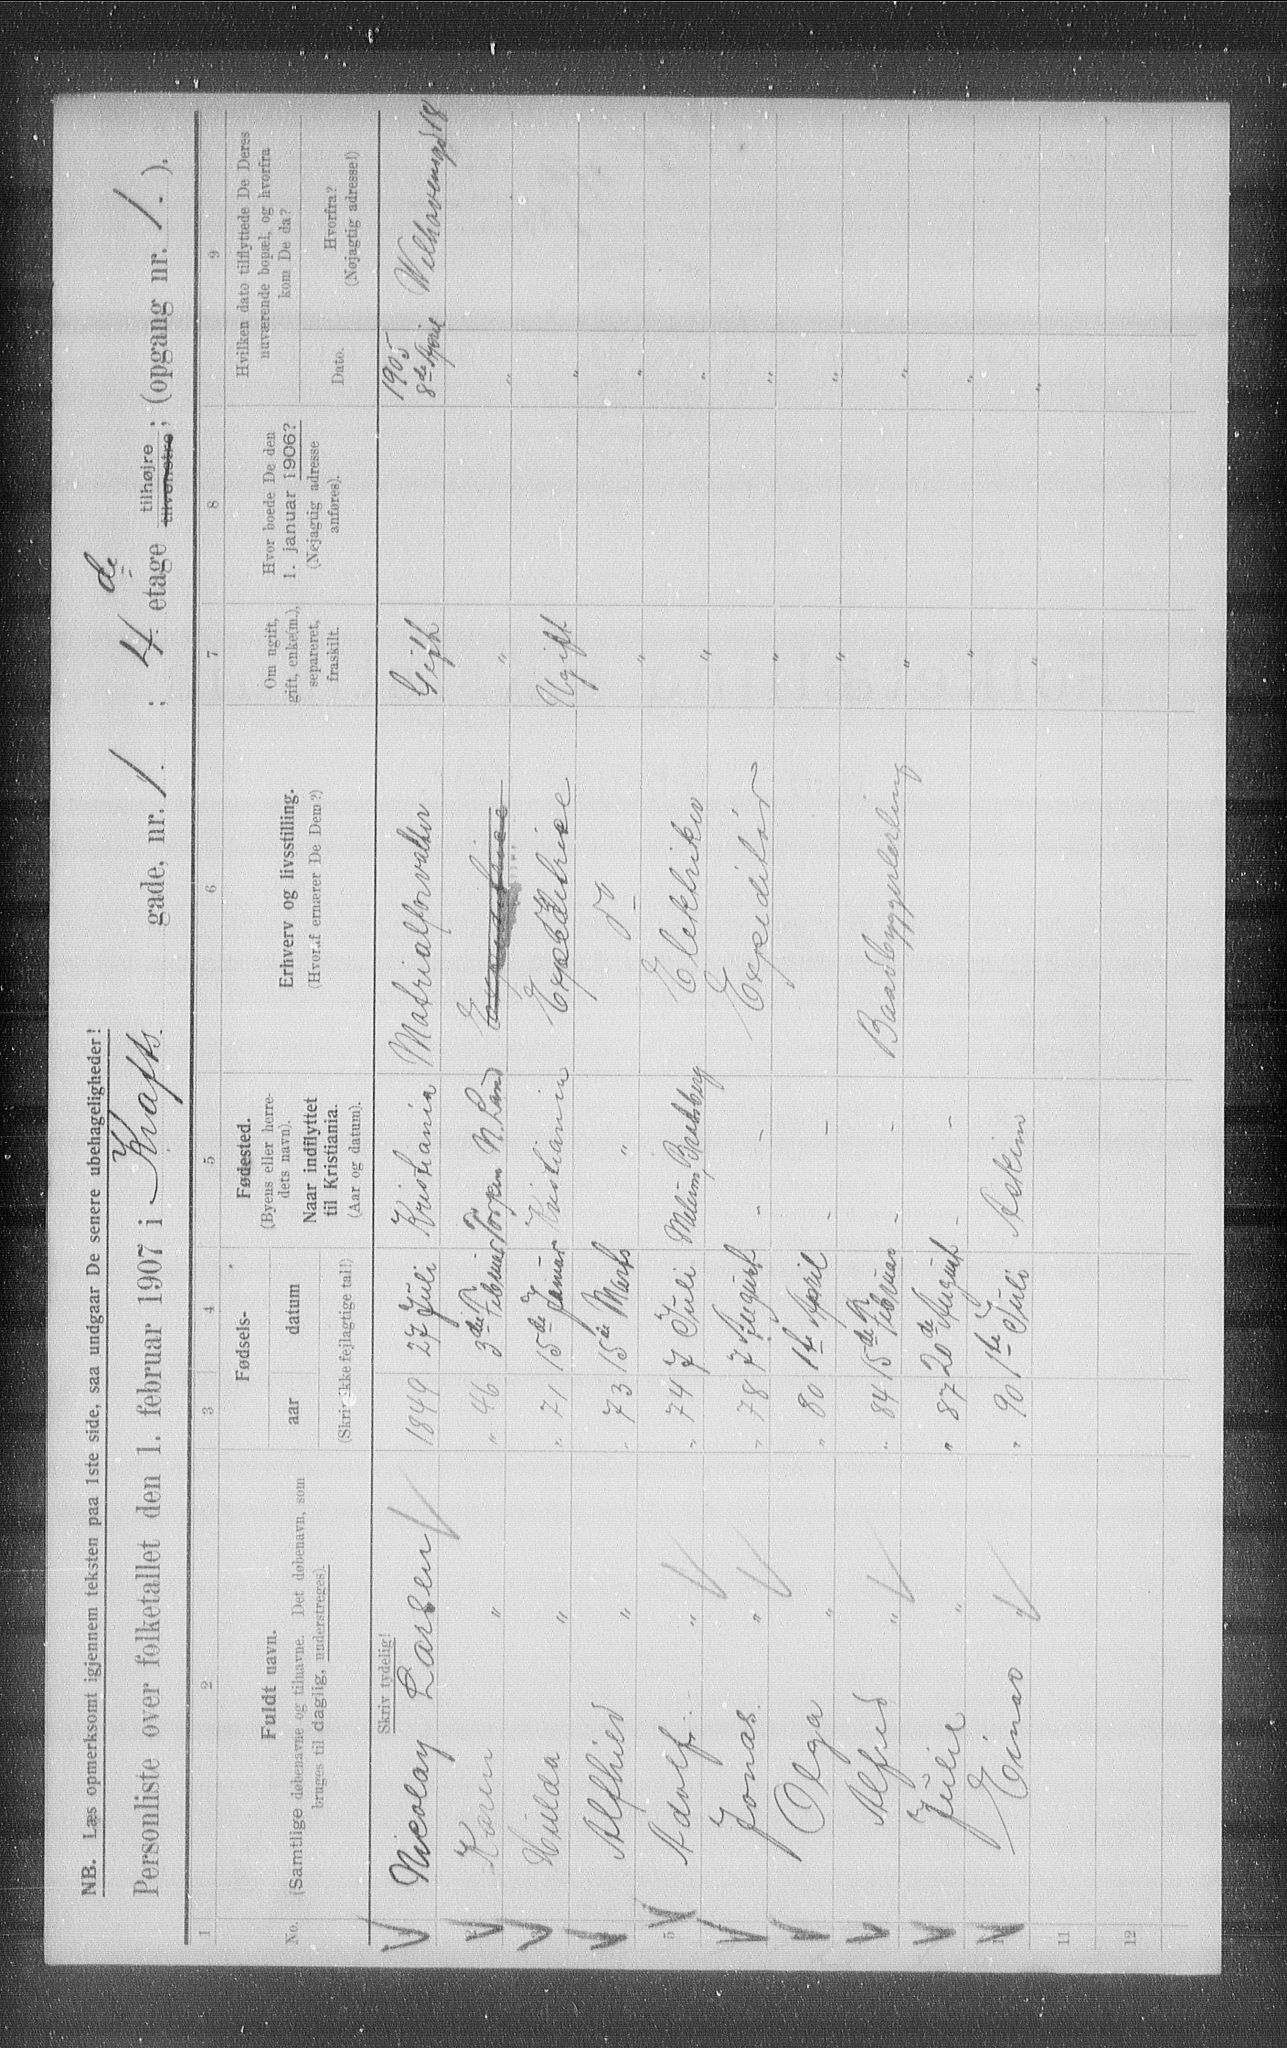 NB. Læs opmerksomt igjennem teksten paa 1ste side, saa undgaar De senere ubehageligheder!
Personliste over folketallet den 1. februar 1907 i Krafts gade, nr. 1. ; 4de etage tilhøjre tilvenstre; (opgang nr. 1. ).
1 2 3 4 5 6 7 8 9
No.
Fuldt navn.
(Samtlige døbenavne og tilnavne. Det døbenavn, som
bruges til daglig, understreges).
Fødsels-
aar datum
(Skriv ikke fejlagtige tal!)
Fødested.
(Byens eller herre-
dets navn).
Naar indflyttet
til Kristiania.
(Aar og datum).
Erhverv og livsstilling.
(Hvoraf ernærer De Dem?)
Om ugift,
gift, enke(m.),
separeret,
fraskilt.
Hvor boede De den
1. januar 1906?
(Nøjagtig adresse
anføres).
Hvilken dato tilflyttede De Deres
nuværende bopæl, og hvorfra
kom De da?
Dato.
Hvorfra?
(Nøjagtig adresse!)
Skriv tydelig!
Nicolay Larsen 1849 27 Juli Kristiania Matrialforvalter Gift 1905 8de April Welhavensgd 18
Karen " " 46 3die Februar Torpen N. Land Expeditrice " "
Hulda " " 71 15de Januar Kristiania Expeditrice Ugift "
Alfhild " " 73 15de Marts " do " "
5 Adolf " " 74 7 Juli Melum, Bratsberg Elektriker " "
Jonas " " 78 7 August - - Expeditør " "
Olga " " 80 1te April - - " "
Alfred " " 84 15de Februar - - Baadbyggerlerling " "
Julie " " 87 20de August - - " "
Einar " " 90 1te Juli Askim " "
11
12